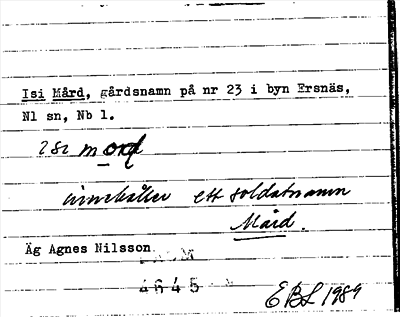 Isi Mård, gårdsnamn på nr 23 i byn Ersnäs,
Nl sn, Nb l.
innehåller ett soldatnamn
Mård.
Äg Agnes Nilsson
4645
EBL 1989